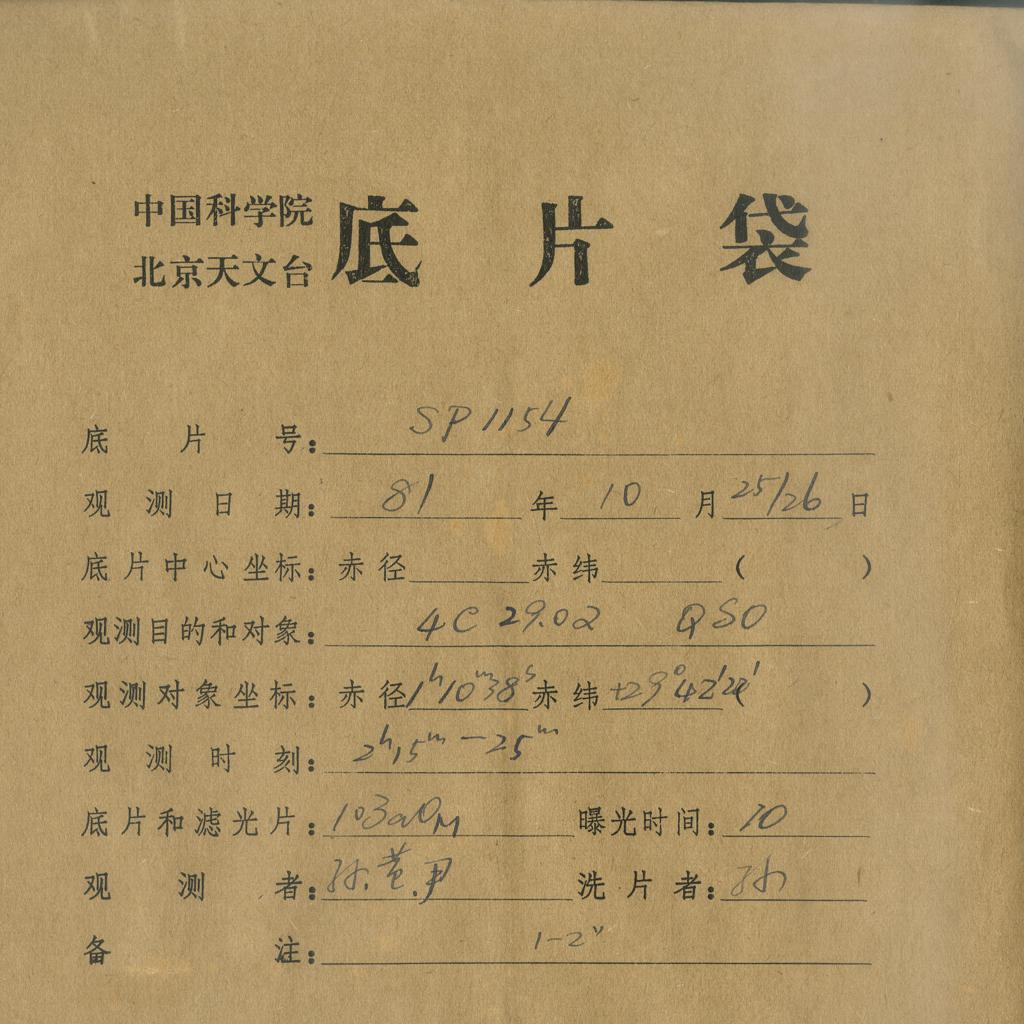 中国科学院
北京天文台
底片袋
底片号: SP1154
观测日期: 81年10月25/26日
底片中心坐标: 赤径 赤纬 ( )
观测目的和对象: 4C 29.02 QSO
观测对象坐标: 赤径1ʰ10ᵐ38ˢ赤纬+29°42'24' ( )
观测时刻: 2ʰ15ᵐ-25ᵐ
底片和滤光片: 103aO 曝光时间: 10
观测者: 孙.黄.尹 洗片者: 孙
备注: 1-2"